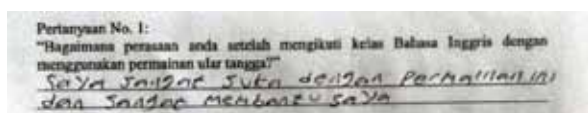 Pertanyaan No. 1:
"Bagaimana perasaan anda setelah mengikuti kelas Bahasa Inggris dengan
menggunakan permainan ular tangga?"
Saya sangat suka dengan Permainan ini
dan sangat membantu saya